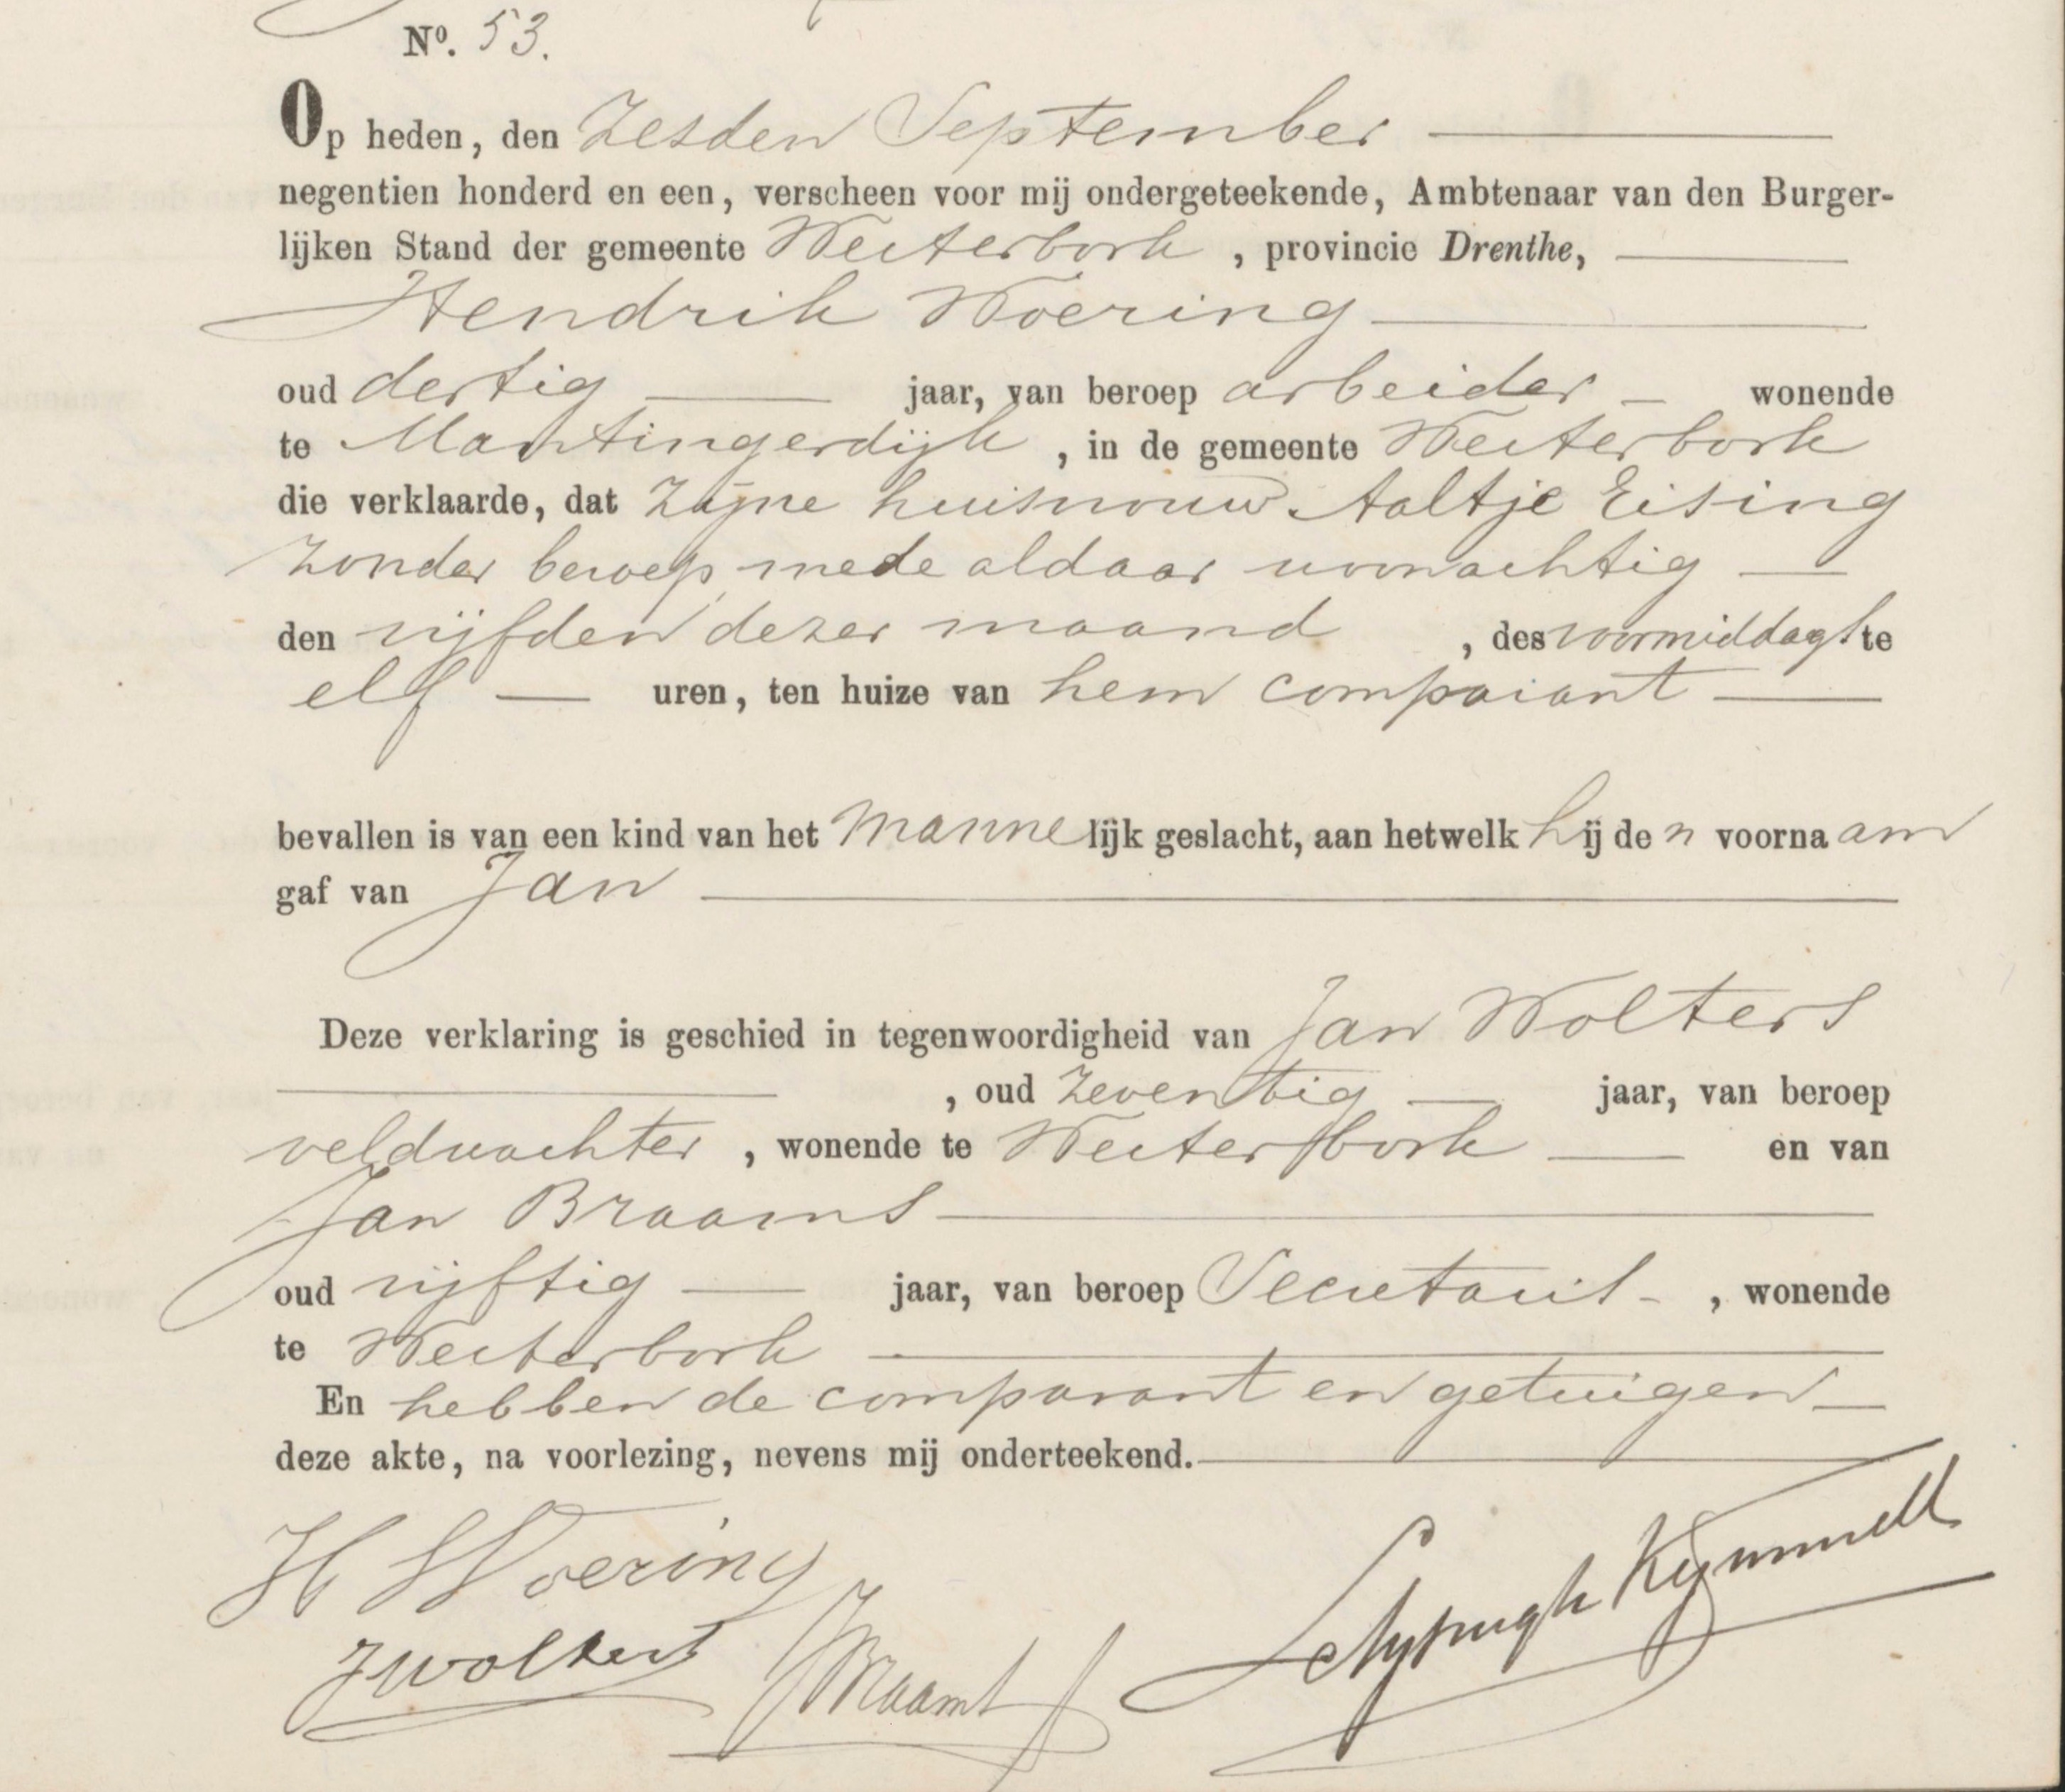 Nº. 53.
Op heden, den Zesden September
negentien honderd en een, verscheen voor mij ondergeteekende, Ambtenaar van den Burger-
lijken Stand der gemeente Westerbork, provincie Drenthe,
Hendrik Woering
oud dertig jaar, van beroep arbeider wonende
te Mantingerdijk, in de gemeente Westerbork
die verklaarde, dat zijne huisvrouw Aaltje Eising
zonder beroep, mede aldaar woonachtig
den vijfden dezer maand, des voormiddags te
elf uren, ten huize van hem comparant
bevallen is van een kind van het mannelijk geslacht, aan hetwelk hij den voornaam
gaf van Jan
Deze verklaring is geschied in tegenwoordigheid van Jan Wolters
, oud zeventig jaar, van beroep
veldwachter, wonende te Westerbork en van
Jan Braams
oud vijftig jaar, van beroep Secretaris, wonende
te Westerbork
En hebben de comparant en getuigen
deze akte, na voorlezing, nevens mij onderteekend.
H Woering
J Wolters JBraams Kymmell